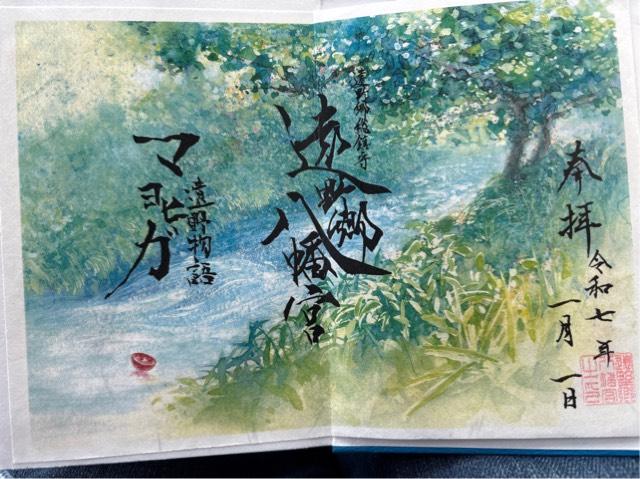 奉拝
令和七年
一月一日
遠野郷総鎮守
遠野郷八幡宮
遠野物語
マヨヒガ